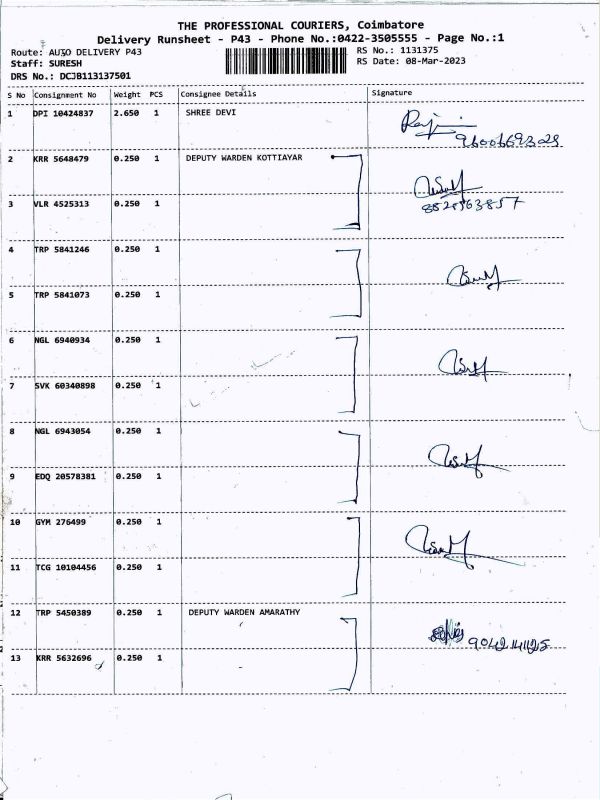 THE PROFESSIONAL COURIERS, Coimbatore
Delivery Runsheet - P43 - Phone No.:0422-3505555 - Page No.:1
Route: AUTO DELIVERY P43 RS No.: 1131375
Staff: SURESH RS Date: 08-Mar-2023
DRS No.: DCJB113137501
S No Consignment No Weight PCS Consignee Details Signature
1 DPI 10424837 2.650 1 SHREE DEVI
2 KRR 5648479 0.250 1 DEPUTY WARDEN KOTTIAYAR
3 VLR 4525313 0.250 1
4 TRP 5841246 0.250 1
5 TRP 5841073 0.250 1
6 NGL 6940934 0.250 1
7 SVK 60340898 0.250 1
8 NGL 6943054 0.250 1
9 EDQ 20578381 0.250 1
10 GYM 276499 0.250 1
11 TCG 10104456 0.250 1
12 TRP 5450389 0.250 1 DEPUTY WARDEN AMARATHY
13 KRR 5632696 0.250 1